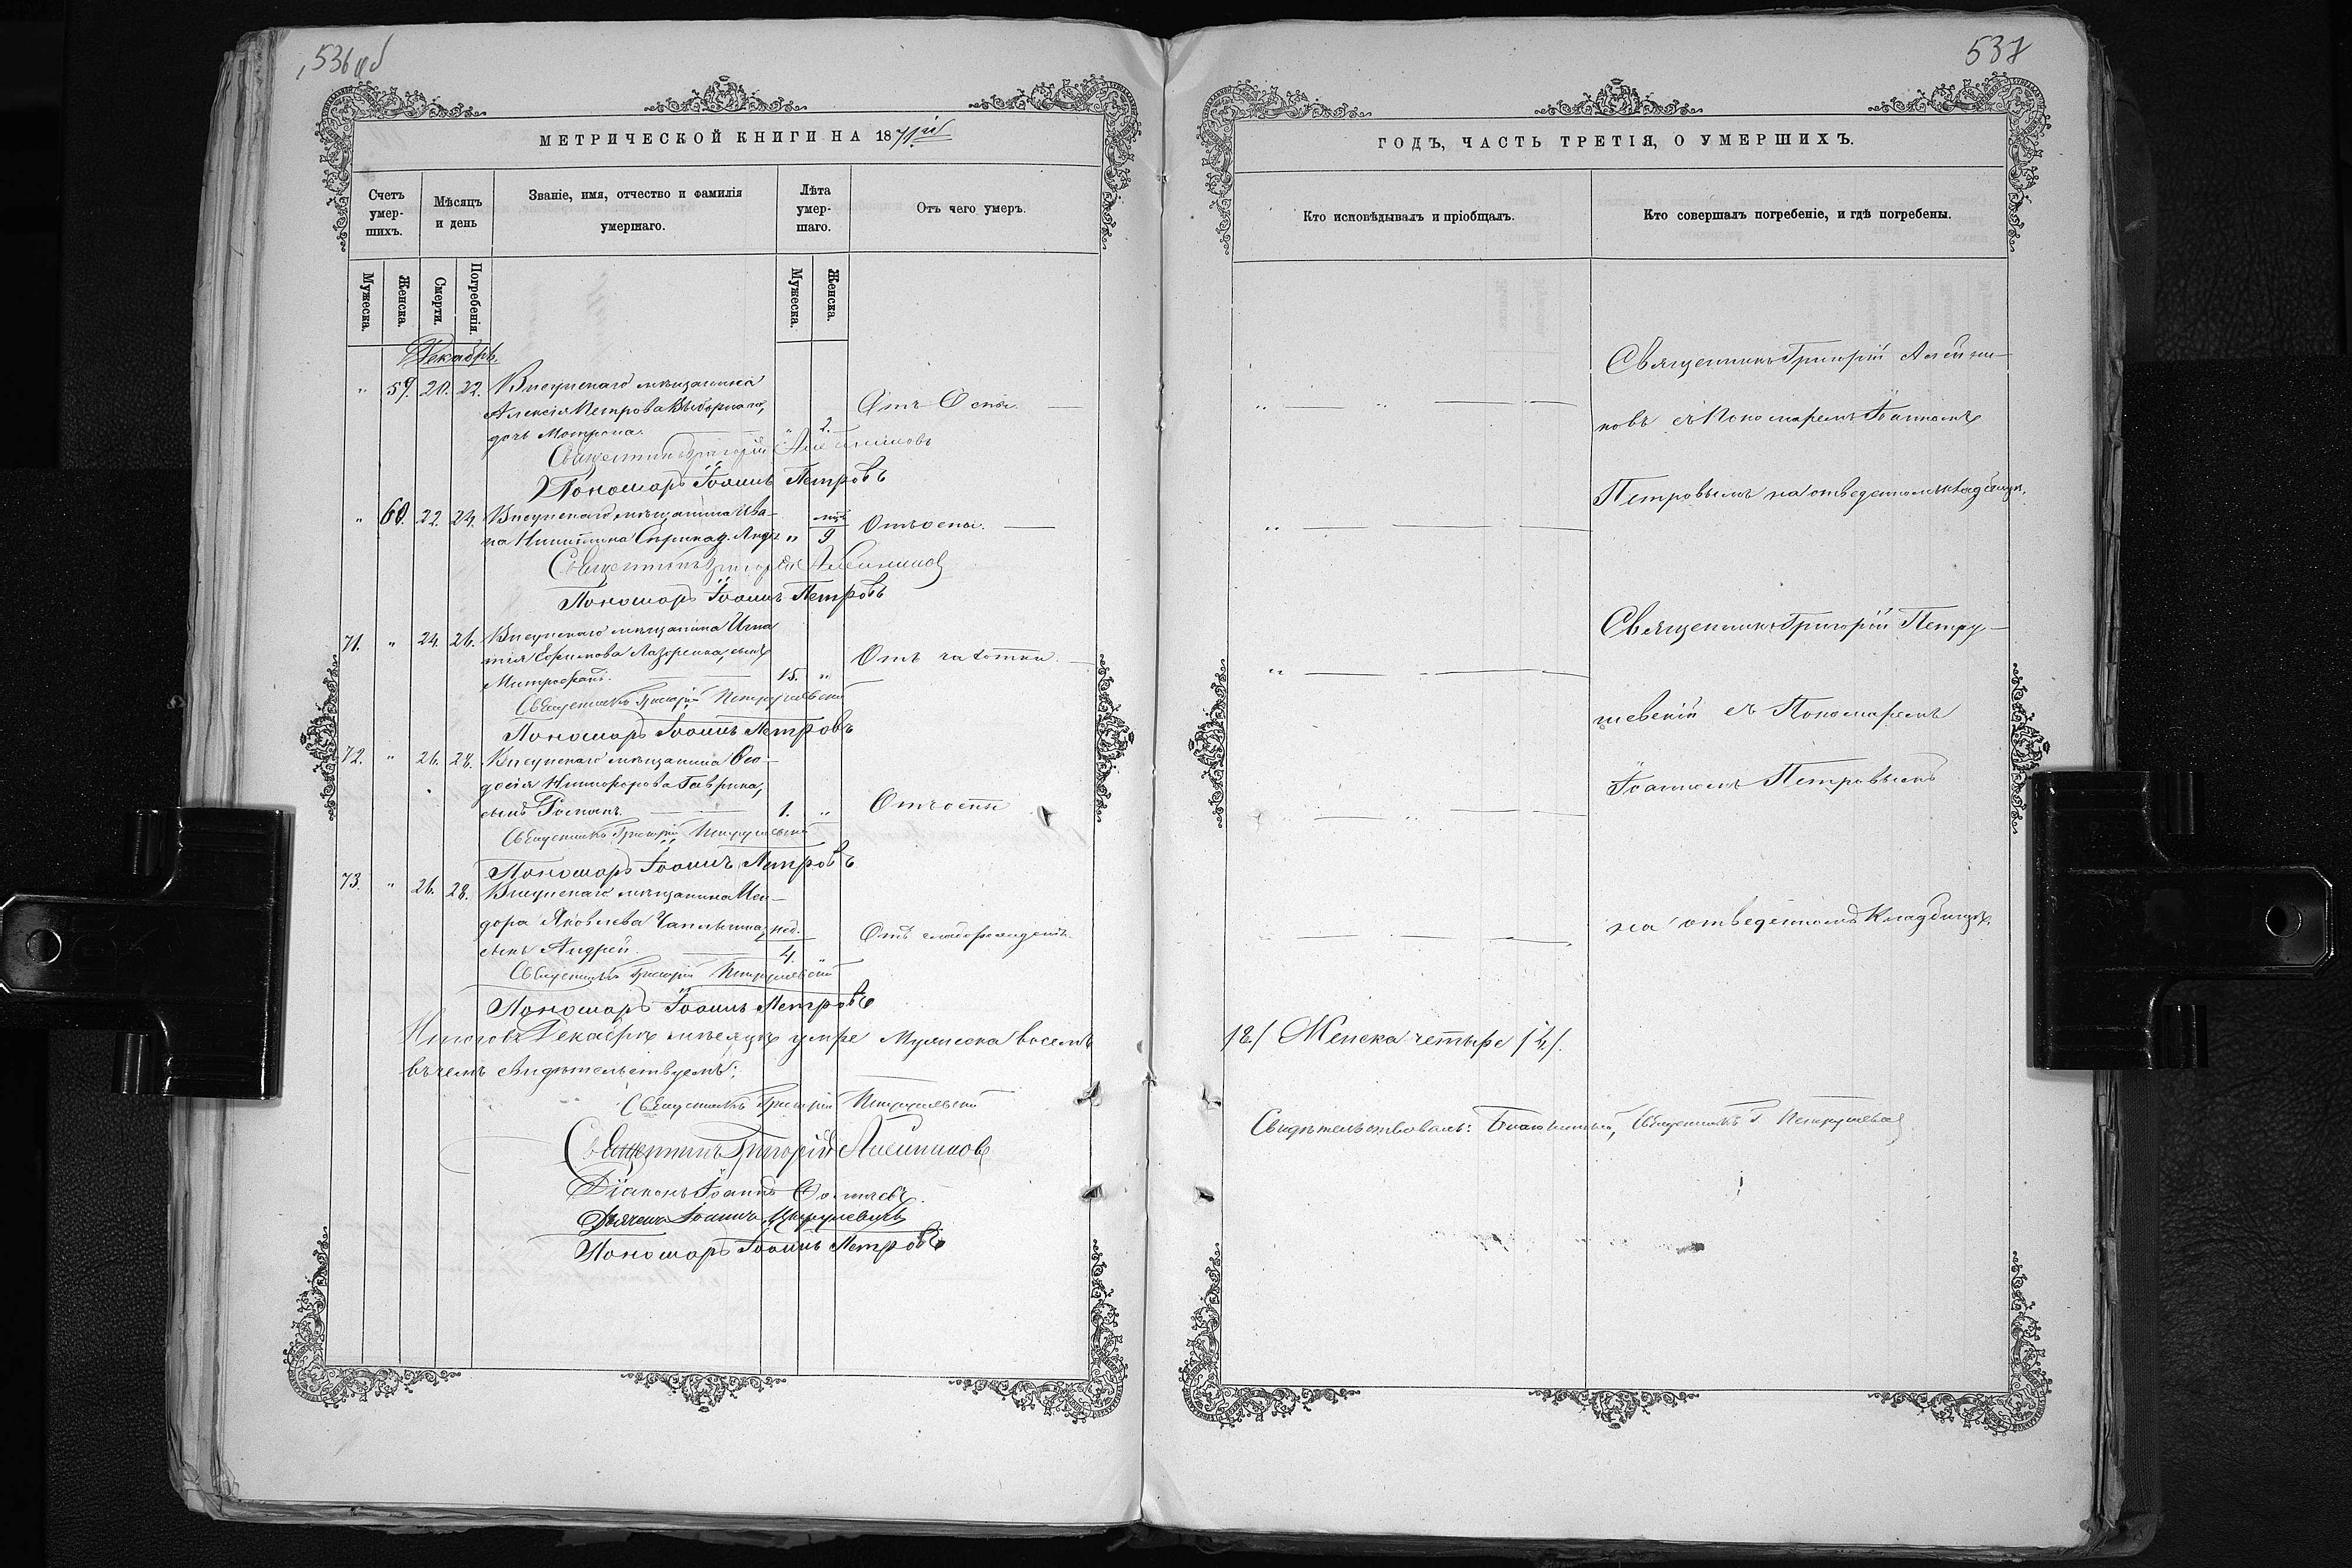 536 об
МЕТРИЧЕСКОЙ КНИГИ НА 1871й
Счетъ умер-шихъ.
Мѣсяцъ и день
Званіе, имя, отчество и фамилія умершаго.
Лѣта умер-шаго.
Отъ чего умеръ.
Мужеска.
Женска.
Смерти.
Погребенія.
Мужеска.
Женска.
Декабрь.
" 59. 20. 22. мѣщанина
Алексія Петрова Выборнаго, Отъ Оспы.
дочь Мотрона. " 2.
Священникъ Григорій
Пономарь Іоаннъ Петровъ
" 60. 22. 24. мѣщанина Ива-
на Никитина " 9 Отъ оспы.
Священникъ Григорій
Пономарь Іоаннъ Петровъ
71. " 24. 26. мѣщанина Игна
тія Ефимова Лазоренка, сынъ Отъ чахотки.
Митрофанъ. 15. "
Священникъ Григорій Петрушевскій
Пономарь Іоаннъ Петровъ
72. " 26. 28. мѣщанина Ѳео-
досія Никифорова Гаврика,
сынъ Романъ. 1. " Отъ оспы
Священникъ Григорій Петрушевскій
Пономарь Іоаннъ Петровъ
73. " 26. 28. мѣщанина Иси-
дора Яковлева нед.
сынъ Андрей 4.
Священникъ Григорій Петрушевскій
Пономарь Іоаннъ Петровъ
Итого въ Декабрѣ мѣсяцѣ умре Мужеска восемь
въ чемъ свидѣтельствуемъ:
Священникъ Григорій Петрушевскій
Священникъ Григорій
Діаконъ Іоаннъ
Дьячекъ Іоаннъ
Пономарь Іоаннъ Петровъ
537
ГОДЪ, ЧАСТЬ ТРЕТІЯ, О УМЕРШИХЪ.
Кто исповѣдывалъ и пріобщалъ.
Кто совершалъ погребеніе, и гдѣ погребены.
Священникъ Григорій Алейни-
ковъ съ Пономаремъ Іоанномъ
Петровымъ на отведенномъ кладбищѣ.
Священникъ Григорій Петру-
шевскій съ Пономаремъ
Іоанномъ Петровымъ
на отведенномъ Кладбищѣ.
/8./ Женска четыре /4./.
Свидѣтельствовалъ: Благочинный, Священникъ Г Петрушевскій